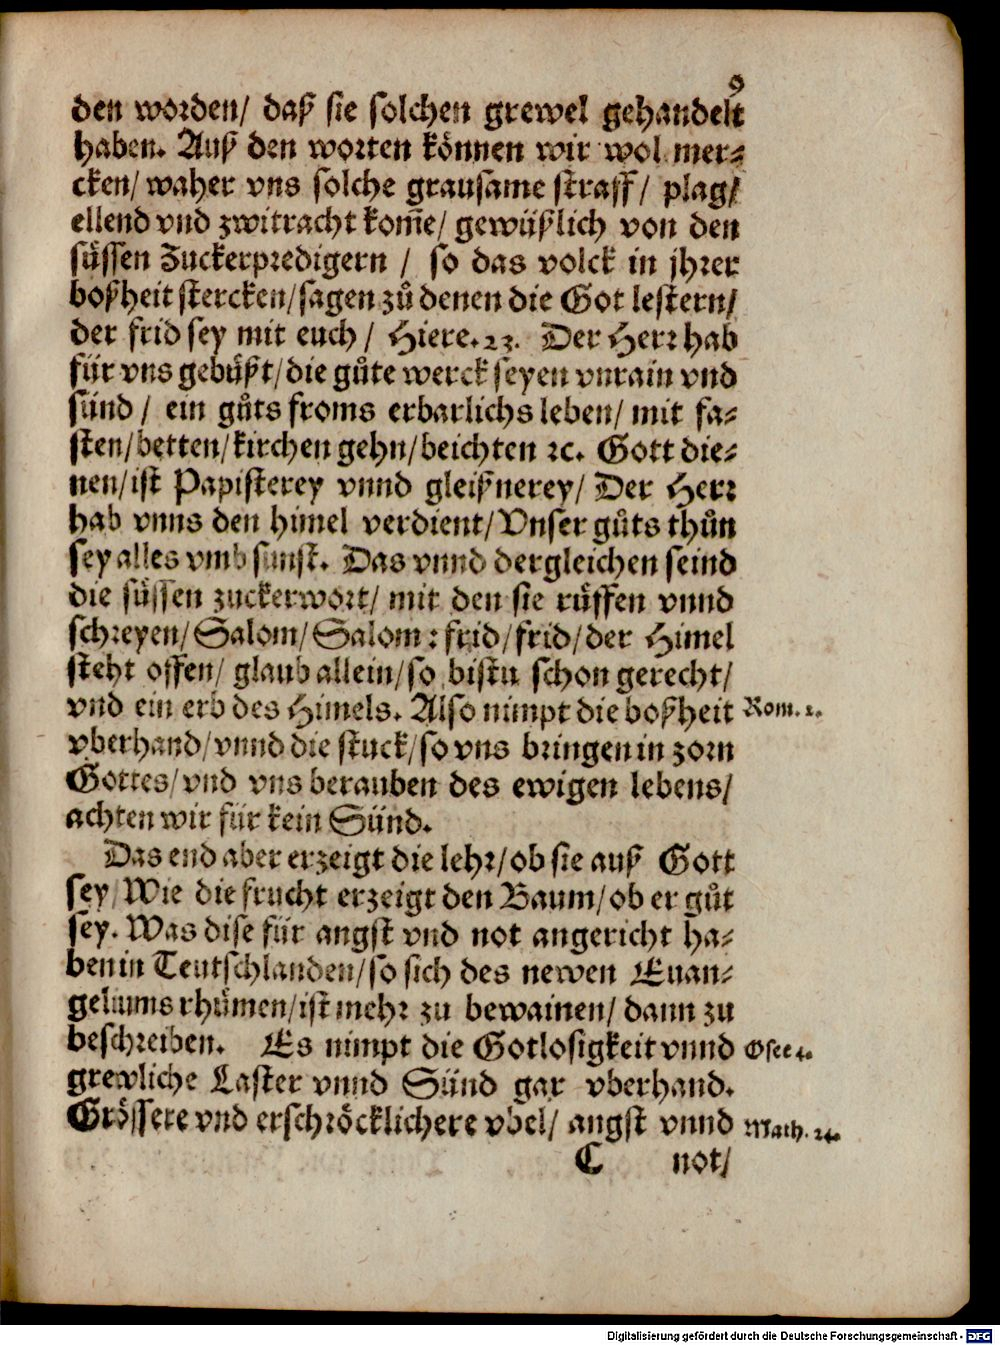 9
den worden/ daß sie solchen grewel gehandelt
haben. Auß den worten können wir wol mer⸗
cken/ waher vns solche grausame straff/ plag/
ellend vnd zwitracht kom̃e/ gewüßlich von den
süssen Zuckerpredigern / so das volck in jhrer
boßheit stercken/ sagen zů denen die Got lestern/
der frid sey mit euch/ Hiere. 23. Der Herr hab
für vns gebüßt/ die gůte werck seyen vnrain vnd
sünd / ein gůts froms erbarlichs leben/ mit fa⸗
sten/ betten/ kirchen gehn/ beichten ꝛc. Gott die⸗
nen/ ist Papisterey vnnd gleißnerey/ Der Herr
hab vnns den himel verdient/ Vnser gůts thůn
sey alles vmb sunst. Das vnnd dergleichen seind
die süssen zuckerwort/ mit den sie rüffen vnnd
schreyen/ Salom/ Salom: frid/ frid/ der Himel
steht offen/ glaub allein/ so bistu schon gerecht/
vnd ein erb des Himels. Also nimpt die boßheit
Rom. 1.
vberhand/ vnnd die stuck/ so vns bringen in zorn
Gottes/ vnd vns berauben des ewigen lebens/
achten wir für kein Sünd.
Das end aber erzeigt die lehr/ ob sie auß Gott
sey/ Wie die frucht erzeigt den Baum/ ob er gůt
sey. Was dise für angst vnd not angericht ha⸗
ben in Teutschlanden/ so sich des newen Euan⸗
geliums rhümen/ ist mehr zu bewainen/ dann zu
beschreiben. Es nimpt die Gotlosigkeit vnnd
Osee 4.
grewliche Laster vnnd Sünd gar vberhand.
Grössere vnd erschröcklichere vbel/ angst vnnd
Math. 24.
C not/
Digitalisierung gefördert durch die Deutsche Forschungsgemeinschaft - DFG